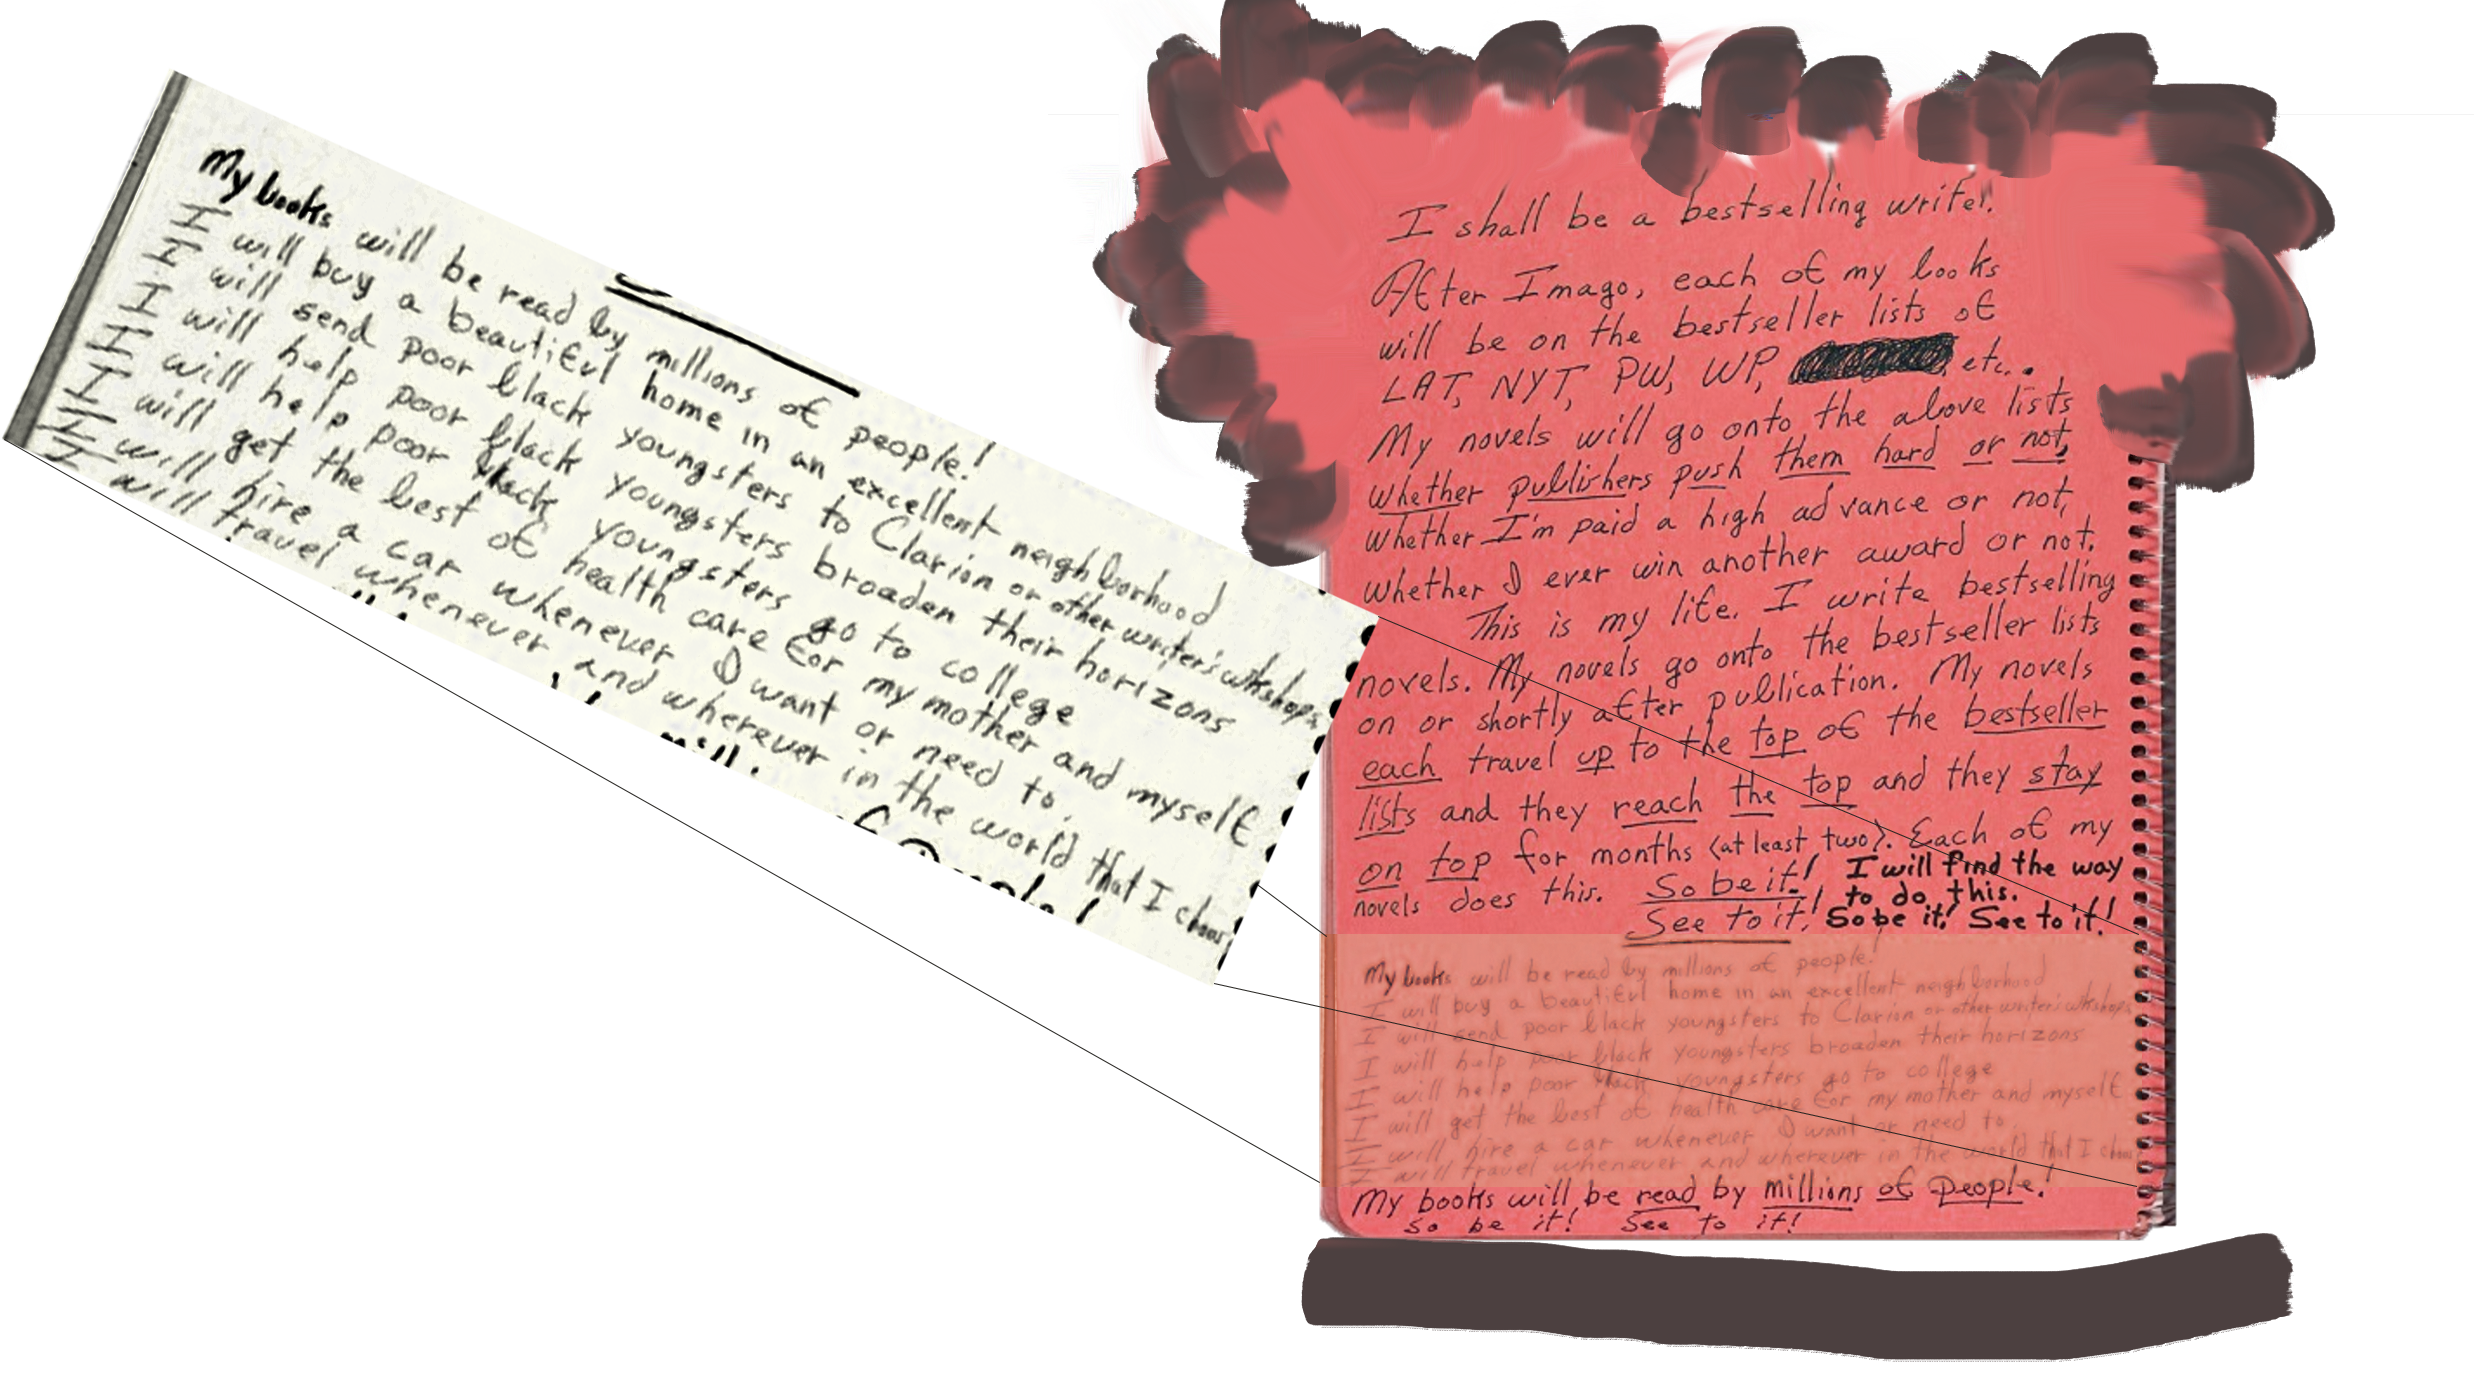 My books will be read by millions of people!
I will buy a beautiful home in an excellent neighborhood
I will send poor black youngsters to Clarion or other writer's wkshops
I will help poor black youngsters broaden their horizons
I will help poor black youngsters go to college
I will get the best of health care for my mother and myself
I will hire a car whenever I want or need to.
I will travel whenever and wherever in the world that I choose
I shall be a bestselling writer.
After Imago, each of my books
will be on the bestseller lists of
LAT, NYT, PW, WP, etc..
My novels will go onto the above lists
whether publishers push them hard or not,
whether I'm paid a high advance or not,
whether I ever win another award or not.
This is my life. I write bestselling
novels. My novels go onto the bestseller lists
on or shortly after publication. My novels
each travel up to the top of the bestseller
lists and they reach the top and they stay
on top for months (at least two). Each of my
novels does this. So be it! I will find the way
See to it! to do this.
So be it! See to it!
My books will be read by millions of people!
I will buy a beautiful home in an excellent neighborhood
I will send poor black youngsters to Clarion or other writer's wkshops
I will help poor black youngsters broaden their horizons
I will help poor black youngsters go to college
I will get the best of health care for my mother and myself
I will hire a car whenever I want or need to.
I will travel whenever and wherever in the world that I choose
My books will be read by millions of people!
So be it! See to it!